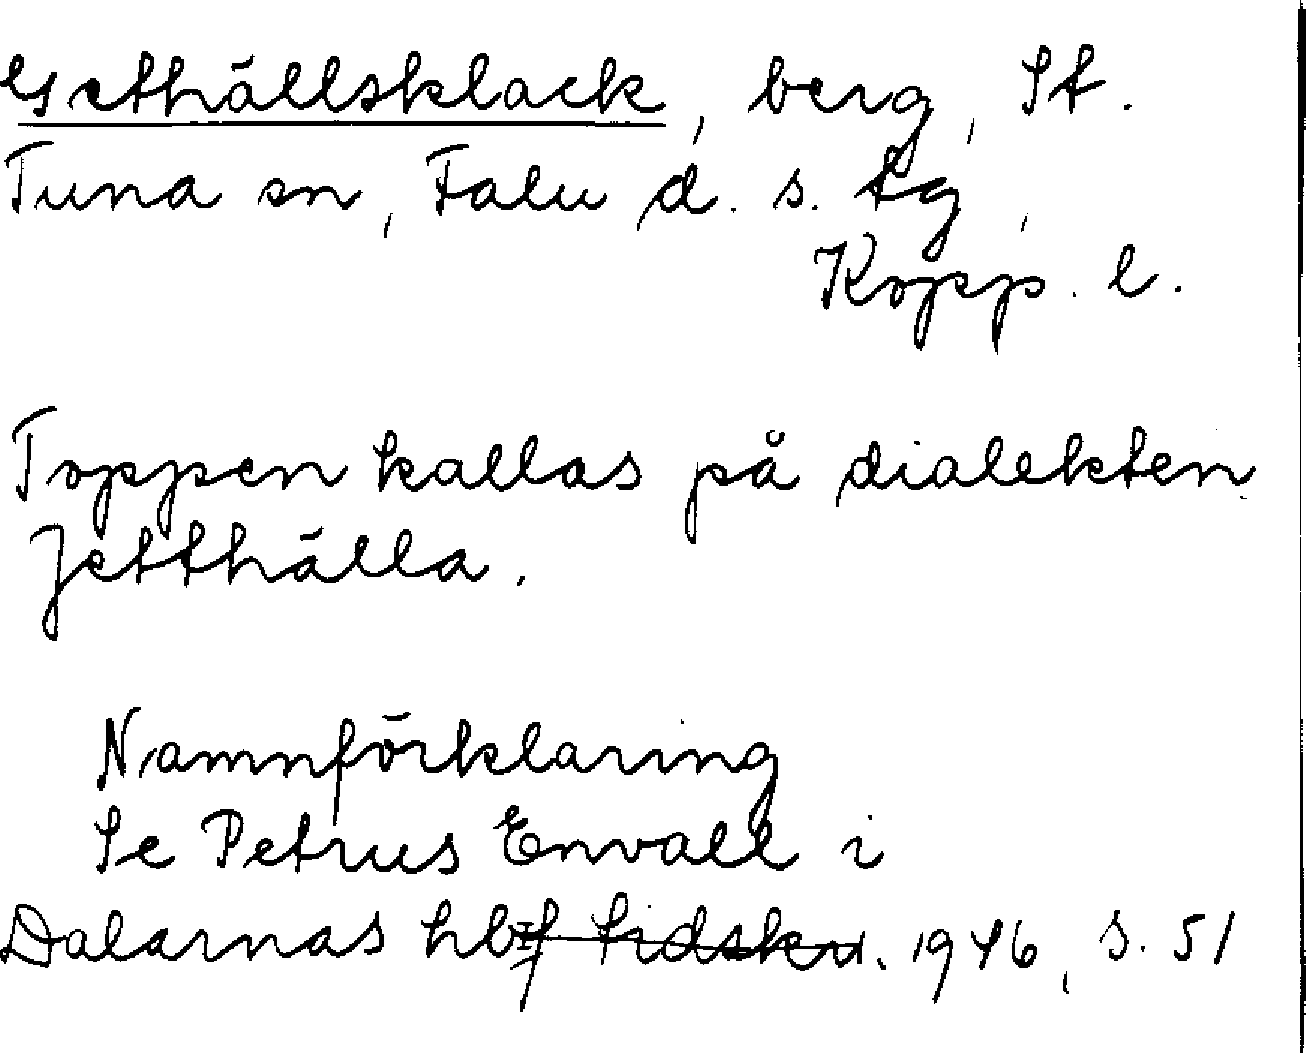 Gethällsklack, berg, St.
Tuna sn, Falu d. s. tg,
Kopp. l.
Toppen kallas på dialekten
Jetthälla.
Namnförklaring
Se Petrus Envall i
Dalarnas hbf tidskr. 1946, s. 51